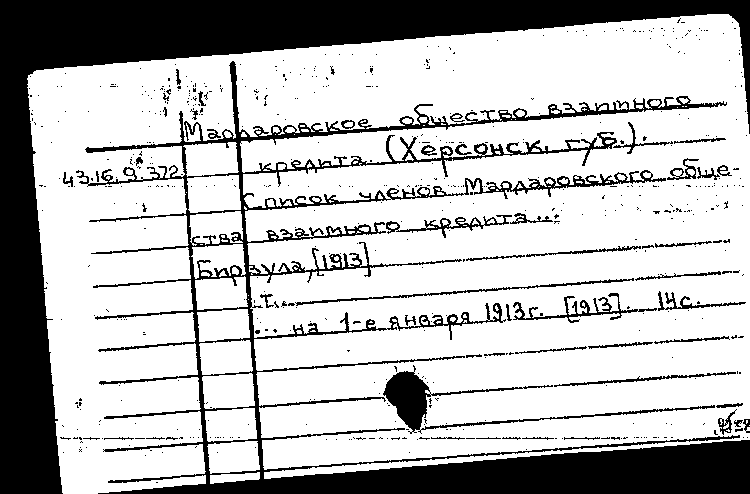 Мардаровское общество взаимного
43.16.9.372 кредита. (Херсонск. губ.).
Список членов Мардаровского обще-
ства взаимного кредита...
Бирзула, [1913]
т...
... на 1-е января 1913г. [1913]. 14с.